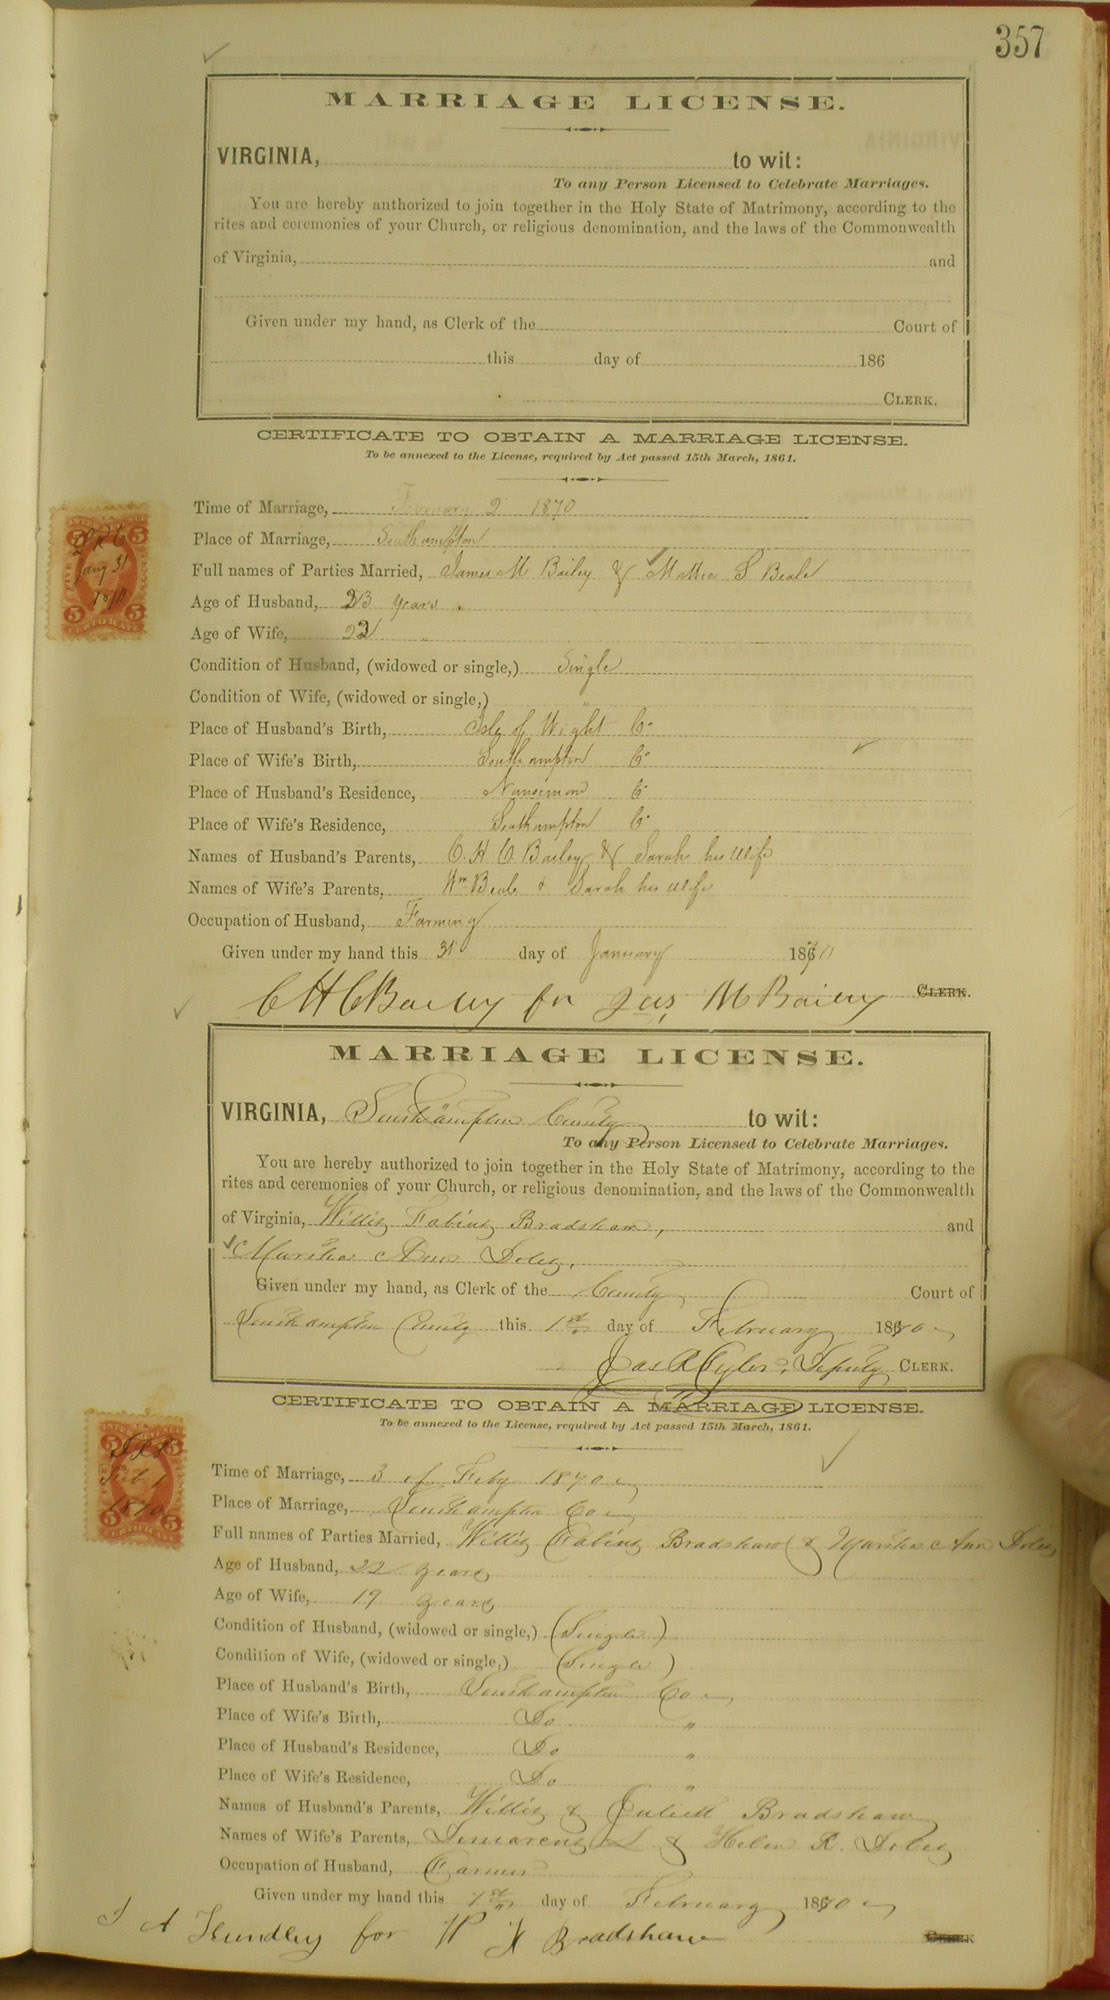 357
MARRIAGE LICENSE.
VIRGINIA, to wit:
To any Person Licensed to Celebrate Marriages.
You are hereby authorized to join together in the Holy State of Matrimony, according to the
rites and ceremonies of your Church, or religious denomination, and the laws of the Commonwealth
of Virginia, and
Given under my hand, as Clerk of the Court of
this day of 186
CLERK.
CERTIFICATE TO OBTAIN A MARRIAGE LICENSE.
To be annexed to the License, required by Act passed 15th March, 1861.
Time of Marriage, February 2 1870
Place of Marriage, Southampton
Full names of Parties Married, James M Bailey & Mattie S Beale
Age of Husband, 23 years.
Age of Wife, 22 "
Condition of Husband, (widowed or single,) Single
Condition of Wife, (widowed or single,) "
Place of Husband's Birth, Isle of Wight Co
Place of Wife's Birth, Southampton Co
Place of Husband's Residence, Nansemond Co
Place of Wife's Residence, Southampton Co
Names of Husband's Parents, C. H. C. Bailey & Sarah his wife
Names of Wife's Parents, Wm Beale & Sarah his wife
Occupation of Husband, Farming
Given under my hand this 31 day of January 1870
C H C Bailey for Jas M Bailey CLERK.
Jany 31
1870
MARRIAGE LICENSE.
VIRGINIA, Southampton County to wit:
To any Person Licensed to Celebrate Marriages.
You are hereby authorized to join together in the Holy State of Matrimony, according to the
rites and ceremonies of your Church, or religious denomination, and the laws of the Commonwealth
of Virginia, Willis Fabius Bradshaw, and
Martha Ann Doles,
Given under my hand, as Clerk of the County Court of
Southampton County this 1st day of February 1870
Jas R Tyler, Deputy CLERK.
CERTIFICATE TO OBTAIN A MARRIAGE LICENSE.
To be annexed to the License, required by Act passed 15th March, 1861.
Feb. 1
1870
Time of Marriage, 3 of Feby 1870
Place of Marriage, Southampton Co
Full names of Parties Married, Willis Fabius Bradshaw & Martha Ann Doles
Age of Husband, 22 years
Age of Wife, 19 years
Condition of Husband, (widowed or single,) (Single)
Condition of Wife, (widowed or single,) (Single)
Place of Husband's Birth, Southampton Co
Place of Wife's Birth, Do "
Place of Husband's Residence, Do "
Place of Wife's Residence, Do "
Names of Husband's Parents, Willis & Juliett Bradshaw
Names of Wife's Parents, L & Helen R. Doles
Occupation of Husband, Farmer
Given under my hand this 1st day of February 1870
Hundley for W F Bradshaw CLERK